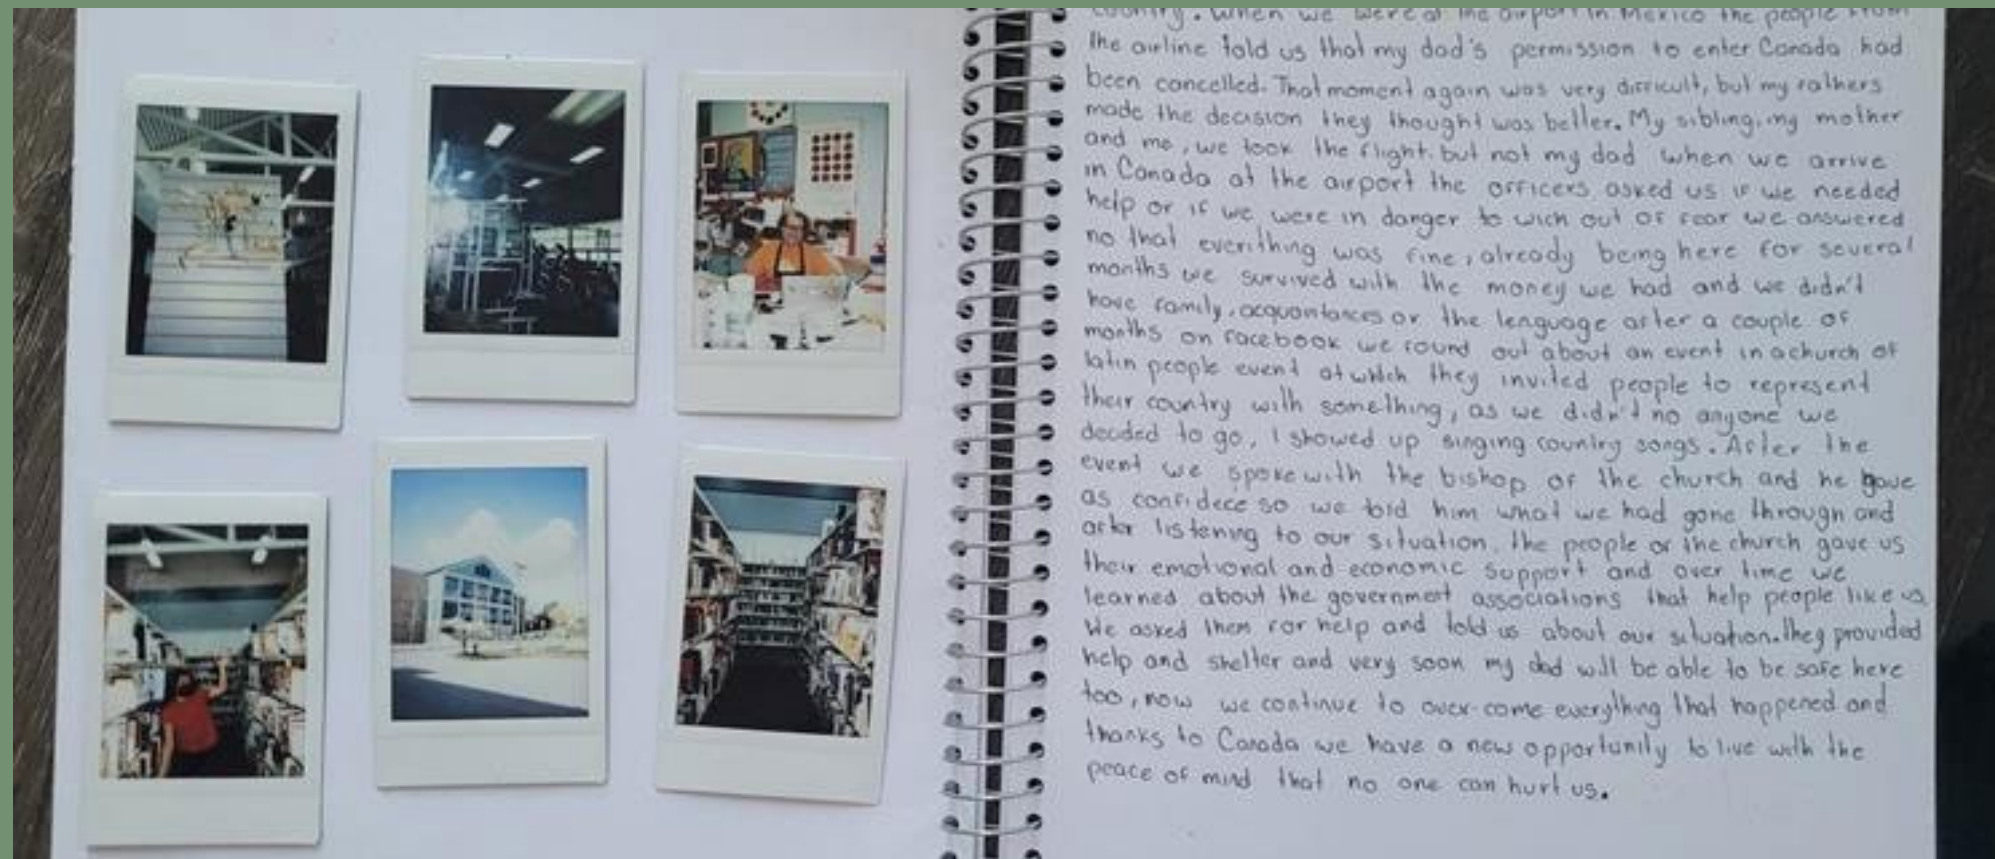 country. When we were at the airport in Mexico the people from
the airline told us that my dad's permission to enter Canada had
been cancelled. That moment again was very difficult, but my fathers
made the decision they thought was better. My sibling, my mother
and me, we took the flight. but not my dad when we arrive
in Canada at the airport the officers asked us if we needed
help or if we were in danger to wich out of fear we answered
no that everithing was fine, already being here for several
months we survived with the money we had and we didn't
have family, acquantances or the lenguage after a couple of
months on facebook we found out about an event in a church of
latin people event at which they invited people to represent
their country with something, as we didn't no anyone we
decided to go, I showed up singing country songs. After the
event we spoke with the bishop of the church and he gave
as confidece so we told him what we had gone through and
after listening to our situation. the people of the church gave us
their emotional and economic support and over time we
learned about the government associations that help people like us
We asked them for help and told us about our situation. they provided
help and shelter and very soon my dad will be able to be safe here
too, now we continue to over-come everything that happened and
thanks to Canada we have a new opportunity to live with the
peace of mind that no one can hurt us.